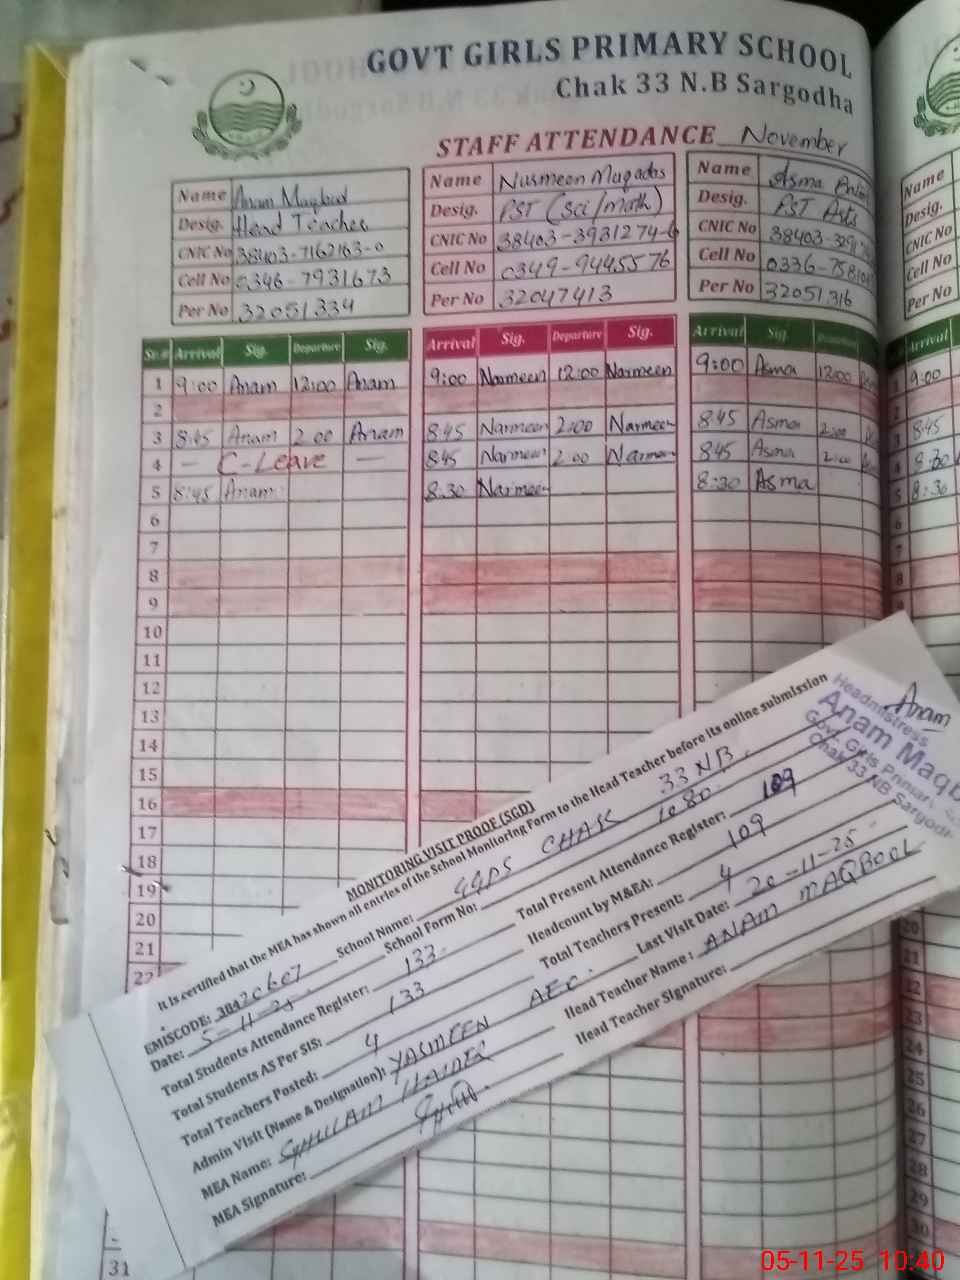 GOVT GIRLS PRIMARY SCHOOL
Chak 33 N.B Sargodha
STAFF ATTENDANCE November
Name Anam Maqbool
Desig. Head Teacher
CNIC No 38403-7162163-0
Cell No 0346-7931673
Per No 32051334
Name Nasmeen Muqadas
Desig. PST (Sci/math)
CNIC No 38403-3931274-6
Cell No 0349-9445576
Per No 32047413
Name Asma
Desig. PST Arts
CNIC No 38403-
Cell No 0336-
Per No 32051316
Name
Desig.
CNIC No
Cell No
Per No
Sr.# Arrival Sig. Departure Sig. Arrival Sig. Departure Sig. Arrival Sig. Departure Arrival
1 9:00 Anam 12:00 Anam 9:00 Narmeen 12:00 Narmeen 9:00 Asma 12:00 1 9:00
2
3 8:45 Anam 2:00 Anam 8:45 Narmeen 2:00 Narmeen 8:45 Asma 2:00 3 8:45
4 — C-Leave — 8:45 Narmeen 2:00 Narmeen 8:45 Asma 2:00 4 8:30
5 8:45 Anam 8:30 Narmeen 8:30 Asma 5 8:30
6 6
7 7
8 8
9
10
11
12
13
14
15
16
17
18
19
20
21
22
MONITORING VISIT PROOF (SGD)
It is certified that the MEA has shown all entries of the School Monitoring Form to the Head Teacher before its online submission
EMISCODE: School Name: GGPS CHAK 33 NB
Date: 5-11-25 School Form No: 1080
Total Students Attendance Register: 133 Total Present Attendance Register: 109
Total Students AS Per SIS: 133 Headcount by M&EA: 109
Total Teachers Posted: 4 Total Teachers Present: 4
Admin Visit (Name & Designation): YASMEEN AEC Last Visit Date: 20-11-25
MEA Name: GHULAM HAIDER Head Teacher Name: ANAM MAQBOOL
MEA Signature: Head Teacher Signature:
Anam
Headmistress
Anam Maqb
Govt. Girls Primary
Chak 33 NB Sargodh
20
21
22
23
24
25
26
27
28
29
30
31
05-11-25 10:40